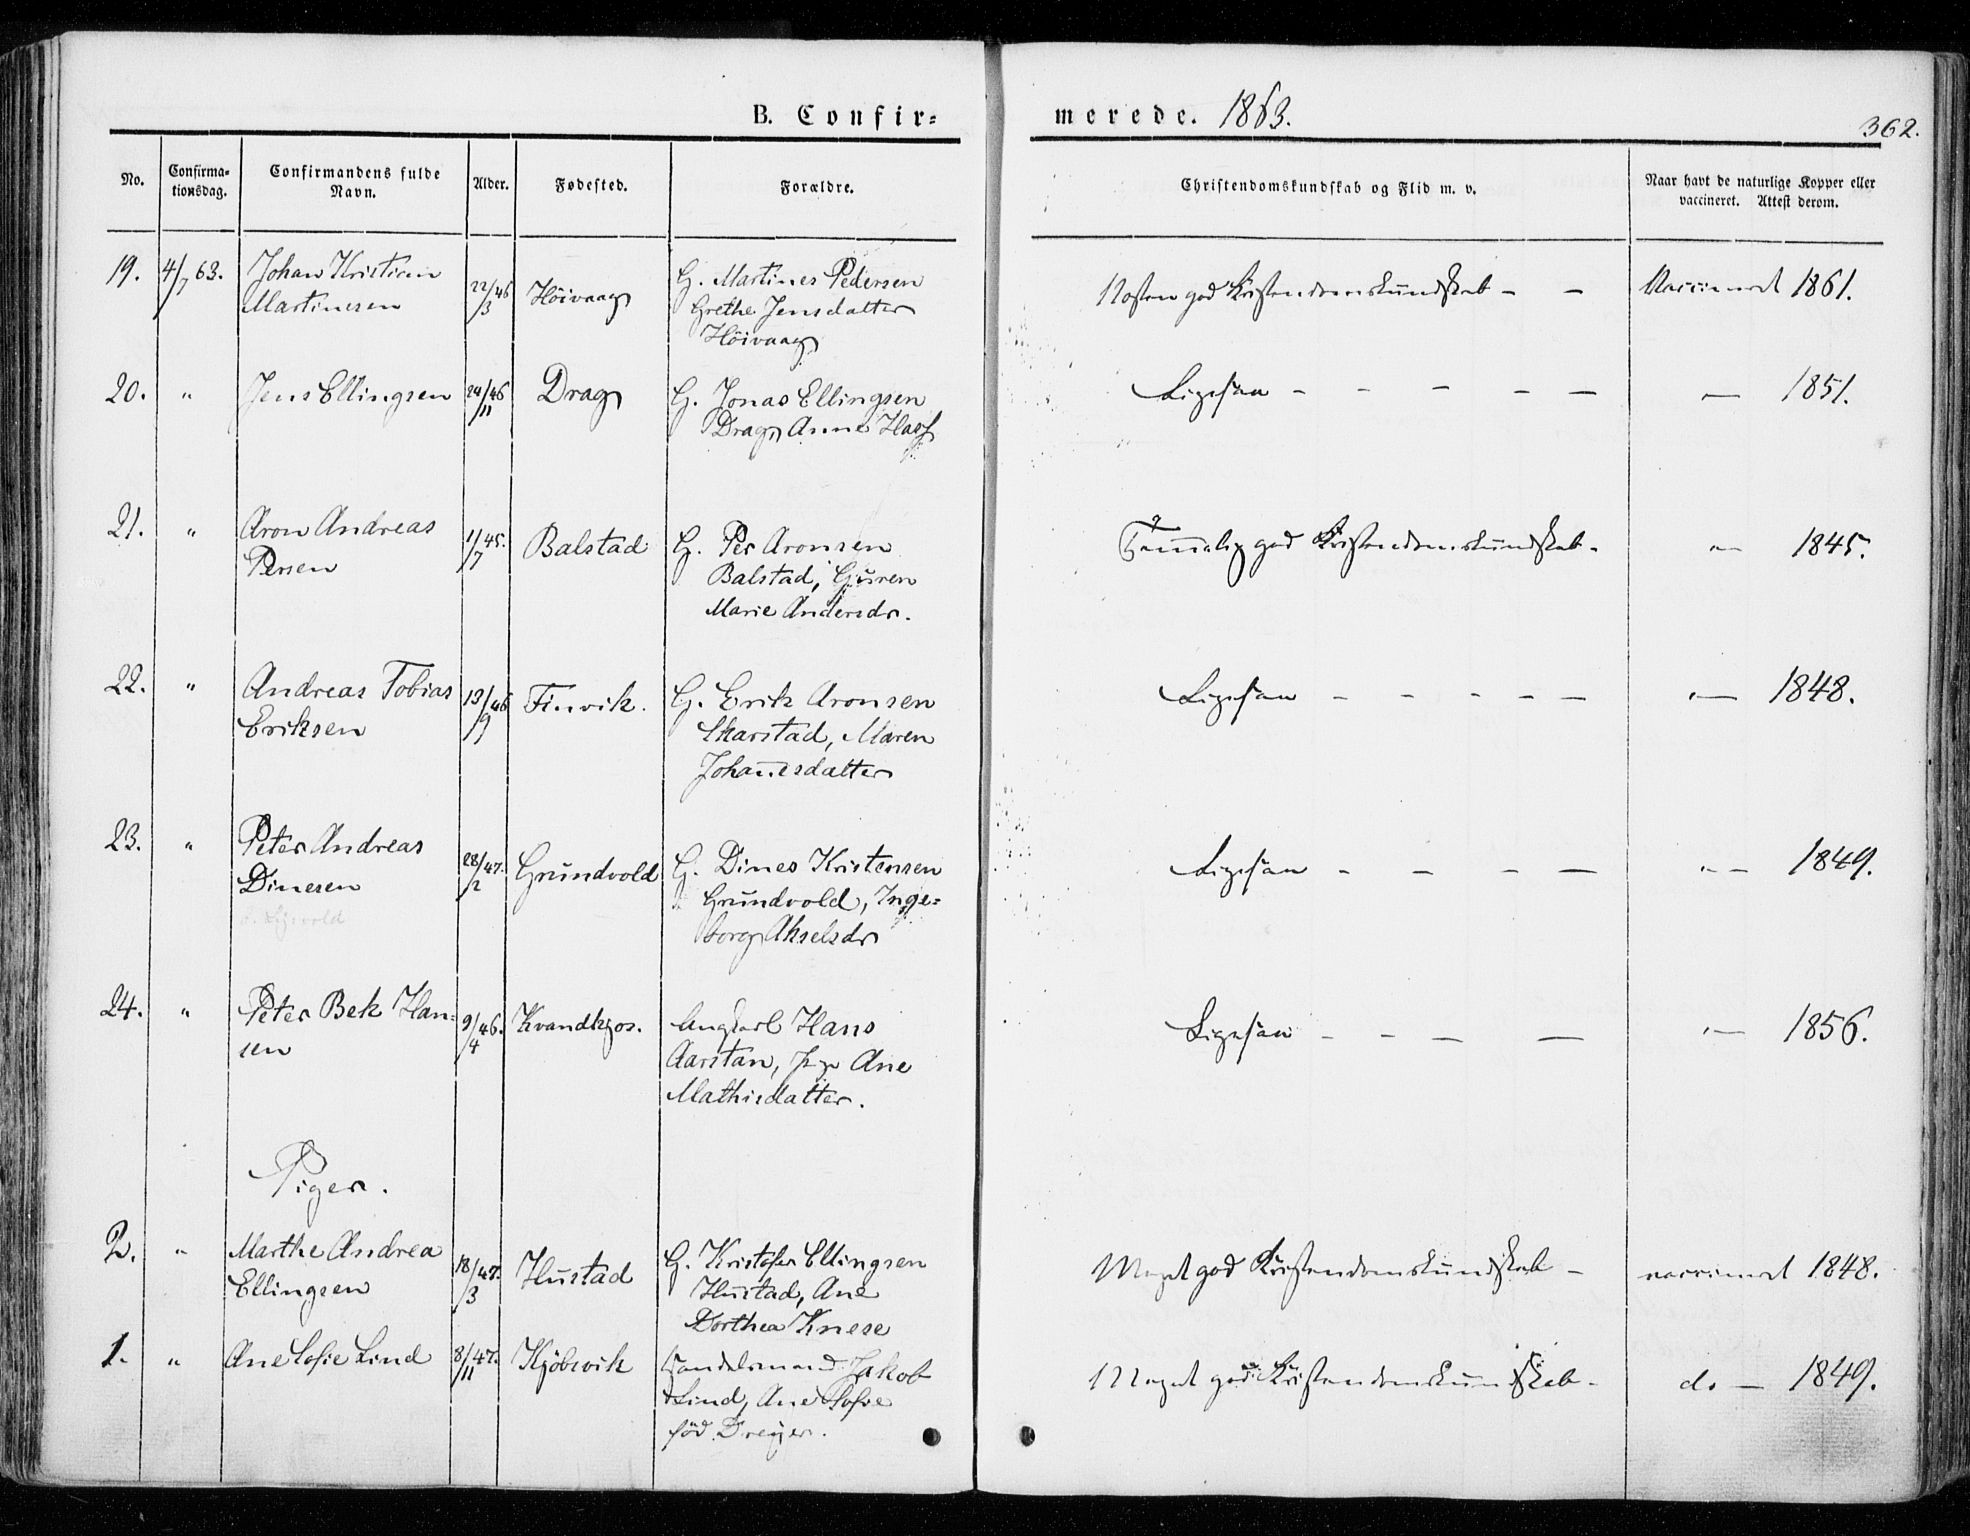 B. Confir=
merede. 1863.
362.
No.
Confirma=
tionsdag.
Confirmandens fulde
Navn.
Alder.
Fødested.
Forældre.
Christendomskundskab og Flid m. v.
Naar havt de naturlige Kopper eller
vaccineret. Attest derom.
19. 4/7 63. Johan Kristian
Martinesen
22/3 46 Höivaag
G. Martines Pedersen
Grethe Jensdatter
Höivaag
Næsten god Kristendomskundskab - -
Vaccineret 1861.
20. " Jens Ellingsen
24/11 46 Drag
G. Jonas Ellingsen
Drag, Anne
Ligesaa - - - - -
— 1851.
21. " Aron Andreas
Persen
1/7 45. Balstad
G. Per Aronsen
Balstad, Guren
Marie Andersdr.
Temmelig god Kristendomskundskab -
" 1845.
22. " Andreas Tobias
Eriksen
13/9 46 Finvik.
G. Erik Aronsen
Skarstad, Maren
Johannesdatter
Ligesaa - - - - -
— 1848.
23. " Peter Andreas
Dinesen
28/2 47. Grundvold
G. Dines Kristensen
Grundvold, Inge=
borg Akselsdr
Ligesaa - - - -
" - 1849.
24. " Peter Bek Han=
sen
9/4 46. Kvandkjos.
Ungkarl Hans
Aarstan, Pige Ane
Mathisdatter.
Ligesaa - - - -
— 1856.
Piger.
2. " Marthe Andrea
Ellingsen
18/3 47. Hustad
G. Kristofer Ellingsen
Hustad, Ane
Dorthea Knese
Meget god Kristendomskundskab -
vaccineret 1848.
1. " Ane Sofie Lind
8/11 47. Kjöbvik
Handelsmand Jakob
Lind, Ane Sofie
föd Dreyer.
Meget god Kristendomskundskab -
do — 1849.